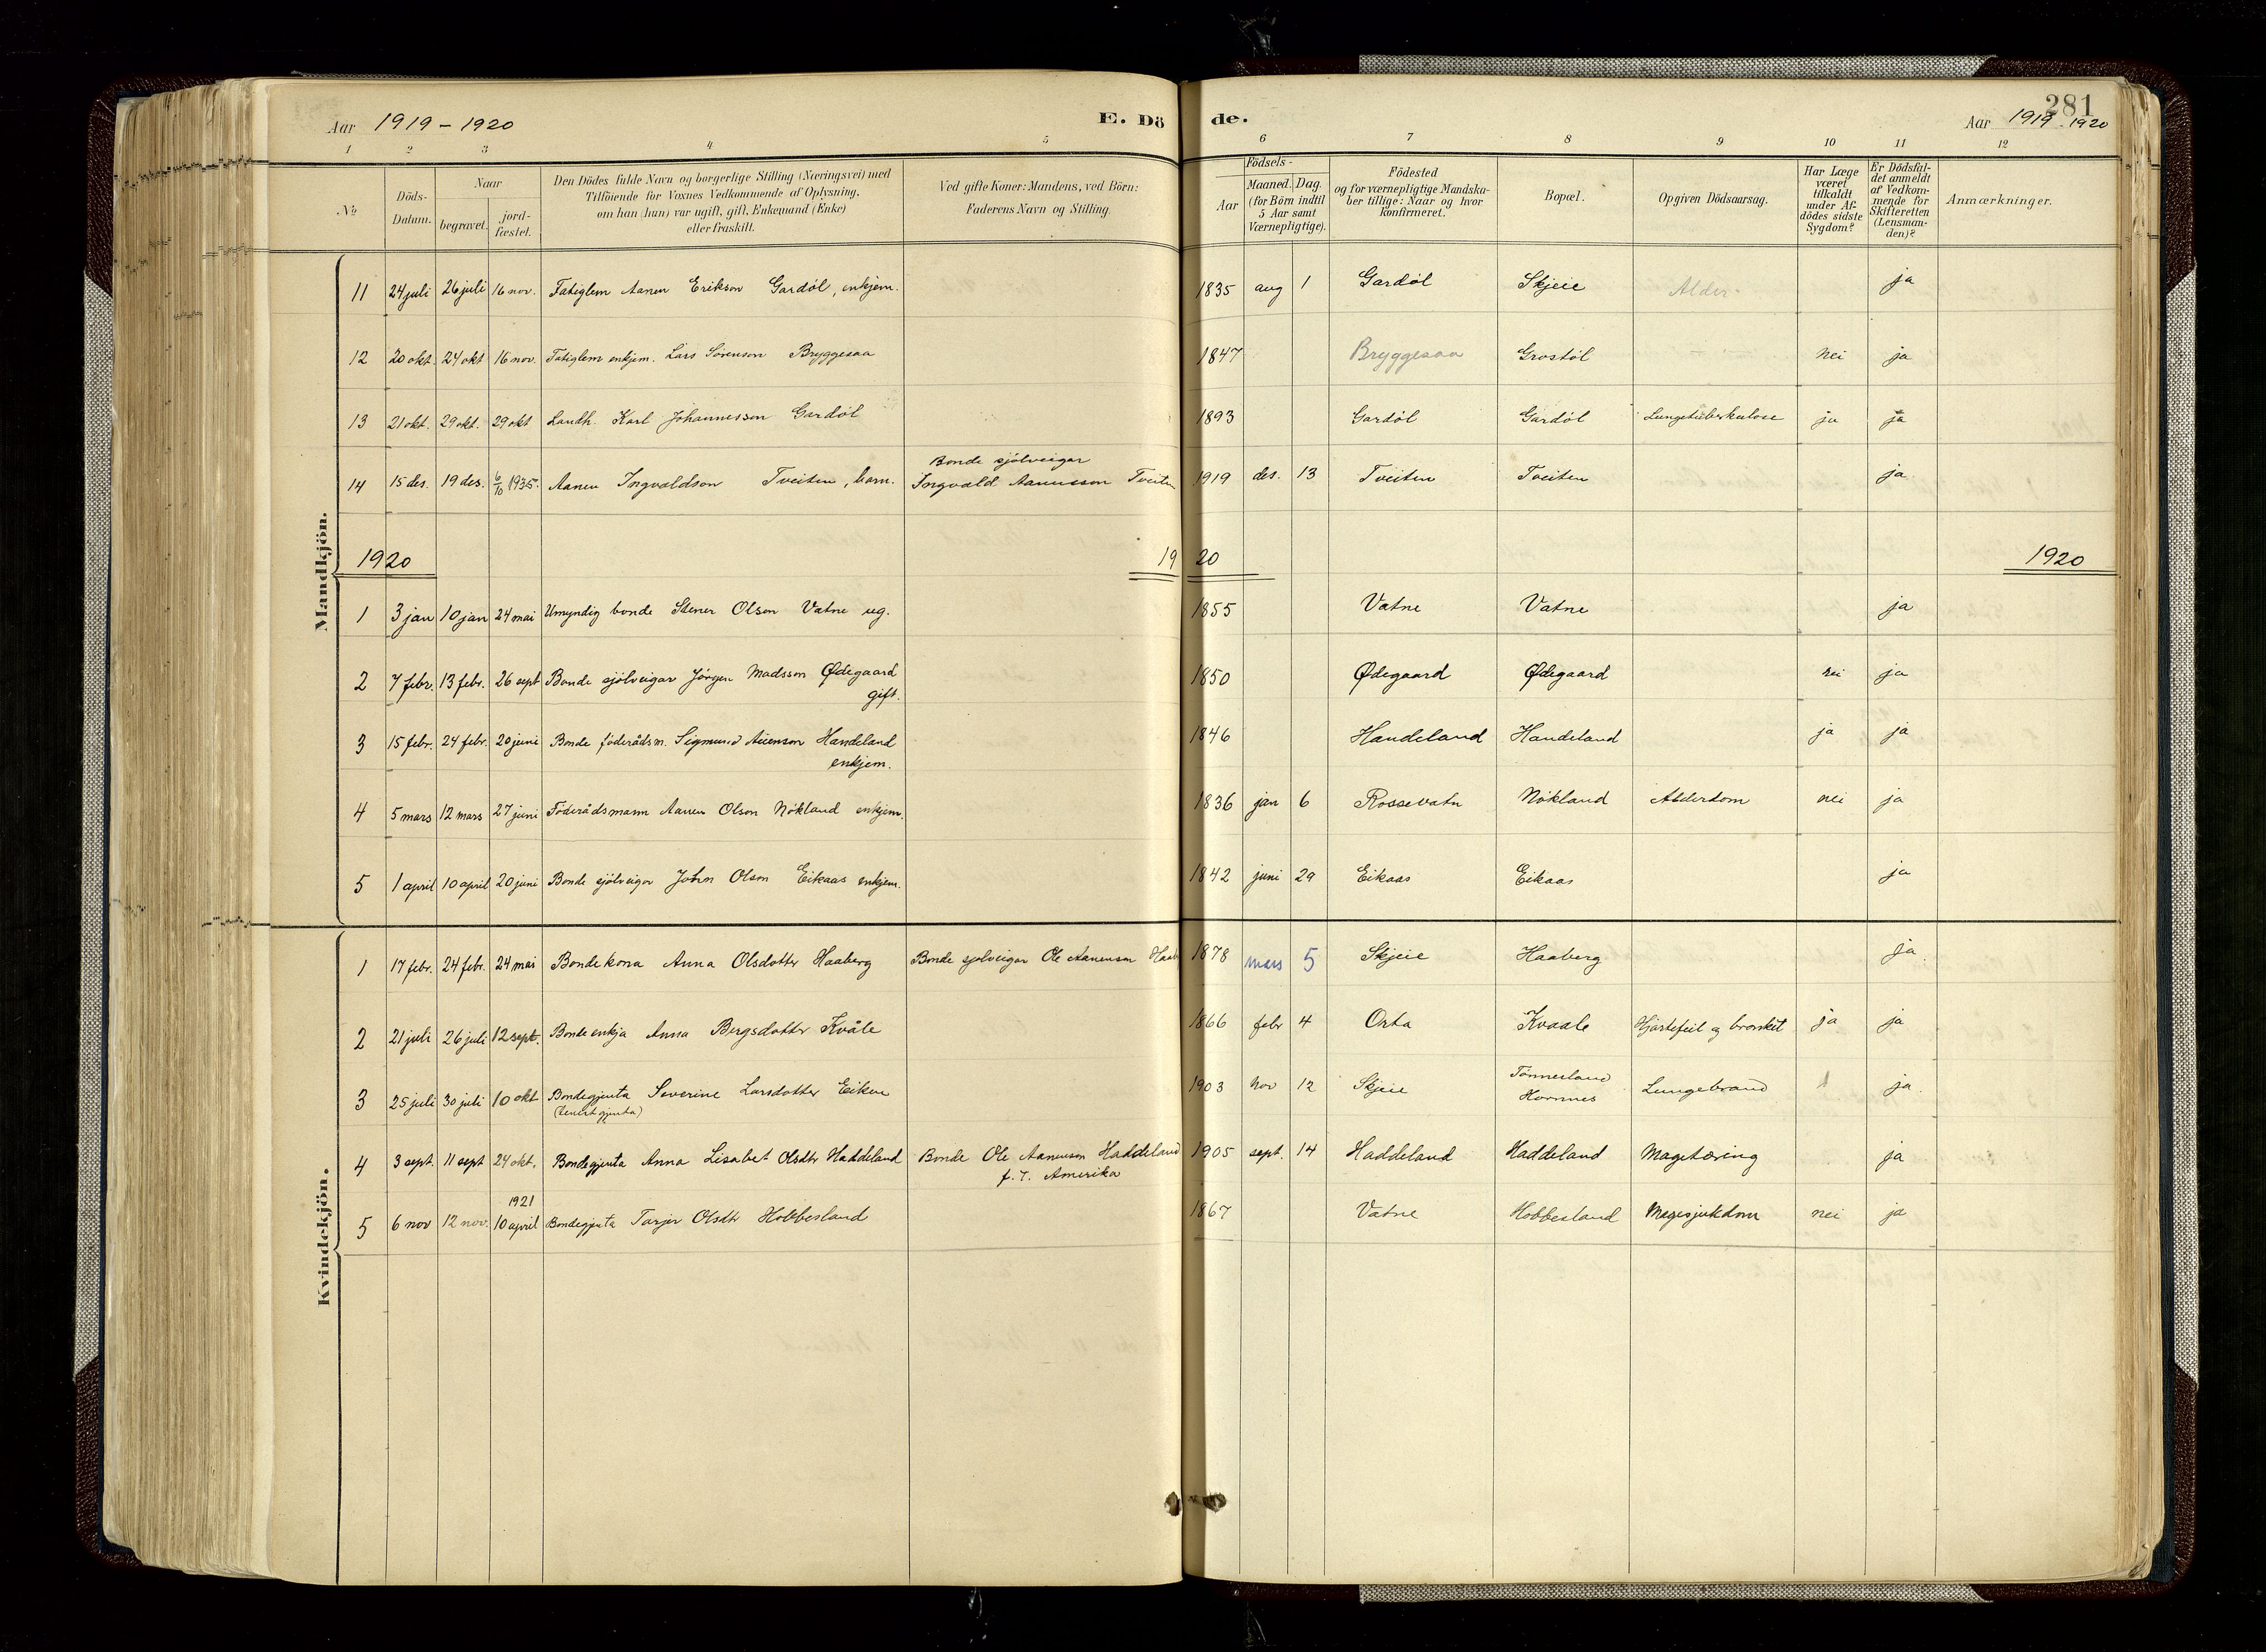 Aar 1919 - 1920
E. Dö de.
281
Aar 1919 - 1920
1 2 3 4 5 6 7 8 9 10 11 12
No
Döds-Datum.
Naar
begravet.
jord-fæstet.
Den Dödes fulde Navn og borgerlige Stilling (Næringsvei) med
Tilföiende for Voxnes Vedkommende af Oplysning,
om han (hun) var ugift, gift, Enkemand (Enke)
eller fraskilt.
Ved gifte Koner: Mandens, ved Börn:
Faderens Navn og Stilling.
Födsels-
Aar
Maaned. Dag.
(for Börn indtil
5 Aar samt
Værnepligtige).
Födested
og for værnepligtige Mandska-
ber tillige: Naar og hvor
konfirmeret.
Bopæl.
Opgiven Dödsaarsag.
Har Læge
været
tilkaldt
under Af-
dödes sidste
Sygdom?
Er Dödsfal-
det anmeldt
af Vedkom-
mende for
Skifteretten
(Lensman-
den)?
Anmærkninger.
Mandkjön.
11 24 juli 26 juli 16 nov. Fatiglem Aanen Erikson Gardöl, enkjem. 1835 aug 1 Gardöl Skjeie Alder ja
12 20 okt. 24 okt 16 nov. Fatiglem enkjem. Lars Sörenson Bryggesaa 1847 Bryggesaa Grostöl nei ja
13 21 okt. 29 okt. 29 okt Landh. Karl Johannesson Gardöl 1893 Gardöl Gardöl Lungetuberkulose ja ja
14 15 des. 19 des. 6/10 1935. Aanen Ingvaldson Tveiten, barn. Bonde sjölveigar
Ingvald Aanensson Tveiten 1919 des. 13 Tveiten Tveiten ja
1920 1920 1920
1 3 jan 10 jan 24 mai Umyndig bonde Stener Olson Vatne ug. 1855 Vatne Vatne ja
2 7 febr. 13 febr. 26 sept Bonde sjölveigar Jörgen Madsson Ødegaard
gift. 1850 Ødegaard Ødegaard nei ja
3 15 febr. 24 febr. 20 juni Bonde föderådsm. Sigmund Aenson Handeland
enkjem. 1846 Handeland Handeland ja ja
4 5 mars 12 mars 27 juni Föderådsmann Aanen Olson Nökland enkjem. 1836 jan 6 Rossevatn Nökland Alderdom nei ja
5 1 april 10 april 20 juni Bonde sjölveigar John Olson Eikaas enkjem. 1842 juni 29 Eikaas Eikaas ja
Kvindekjön.
1 17 febr. 24 febr. 24 mai Bondekona Anna Olsdotter Haaberg Bonde sjolveigar Ole Aanenson Haab 1878 mars 5 Skjeie Haaberg ja
2 21 juli 26 juli 12 sept. Bonde enkja Anna Bergsdotter Kvåle 1866 febr 4 Osta Kvaale Hjartefeil og bronkit ja ja
3 25 juli 30 juli 10 okt Bondegjenta Severine Larsdotter Eiken
(tenestgjenta) 1903 nov 12 Skjeie Tönnesland
Hornnes Lungebrand ja
4 3 sept. 11 sept 24 okt. Bondegjenta Anna Lisabet Olsdtr Haddeland Bonde Ole Aanenson Haddeland
f. T. Amerika 1905 sept. 14 Haddeland Haddeland Magetæring ja
1921
5 6 nov 12 nov. 10 april Bondegjenta Tarjer Olsdtr Hobbesland 1867 Vatne Hobbesland Magesjukdom nei ja